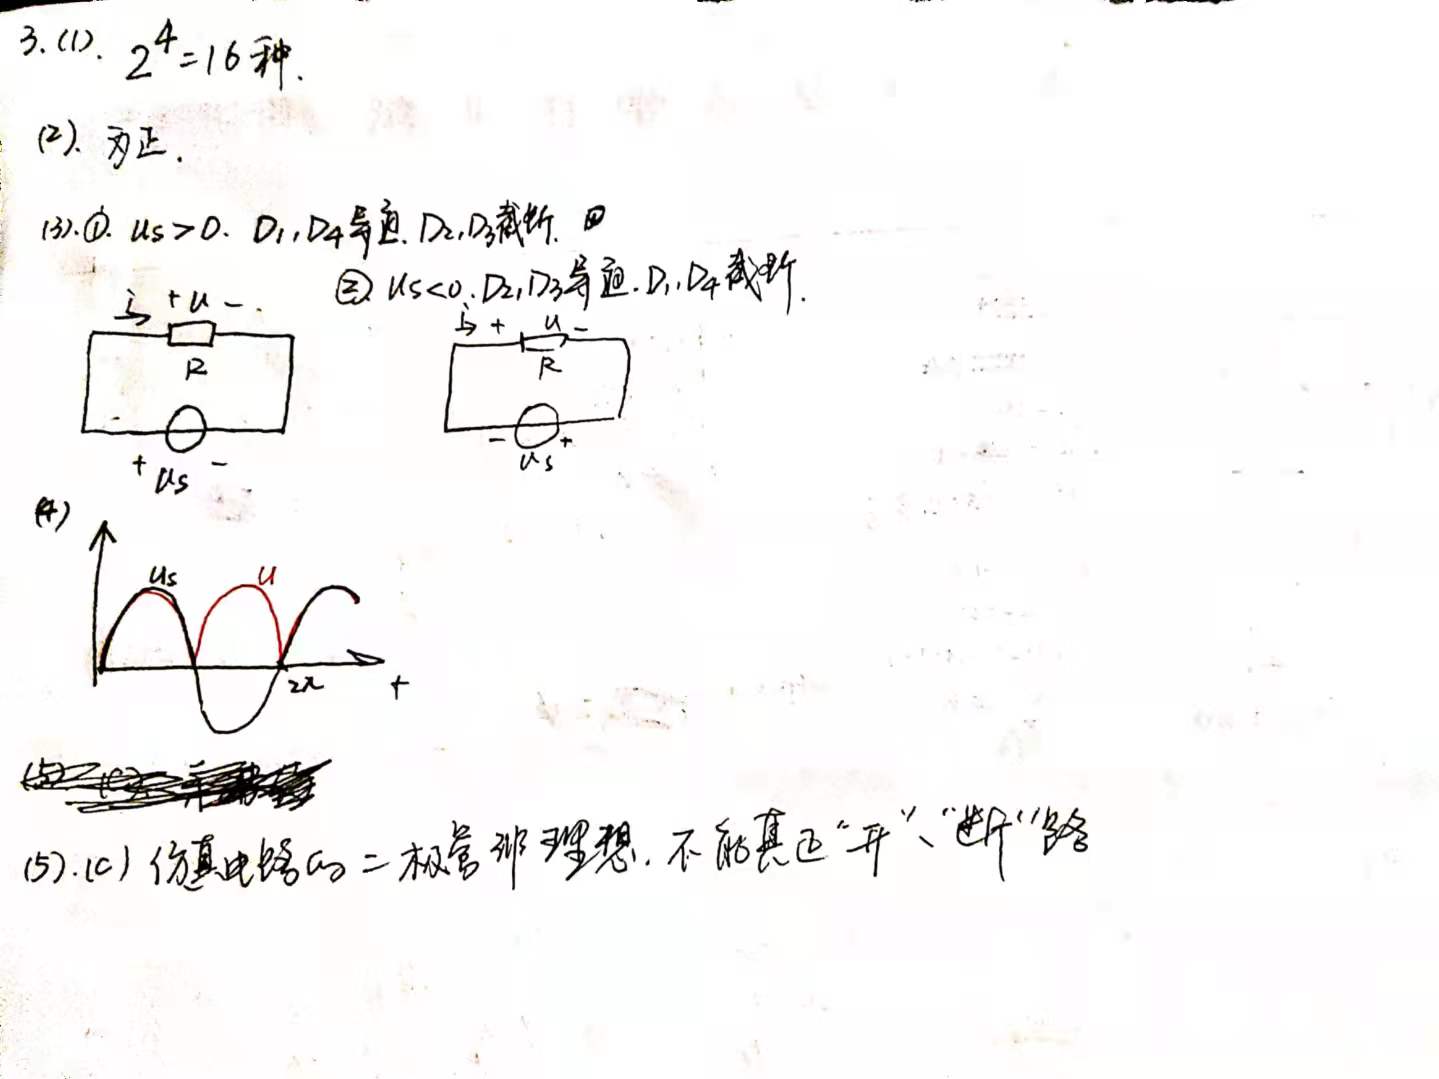 3.(1). 2^4=16种.
(2). 为正.
(3).①. us>0. D1,D4导通. D2,D3截断.
② us<0. D2,D3导通. D1,D4截断.
i + u -
R
+ us -
i + u -
R
- us +
(4)
us u
2π t
(5).(c) 仿真电路的二极管非理想. 不能真正“开”、“断”路